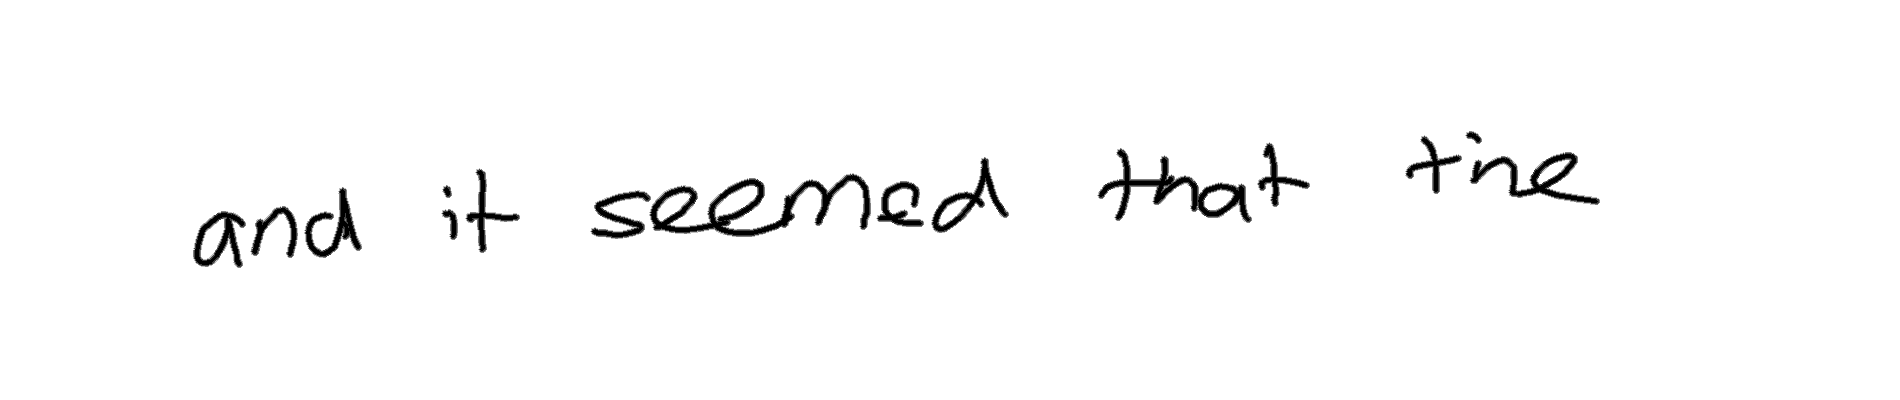 and it seemed that the